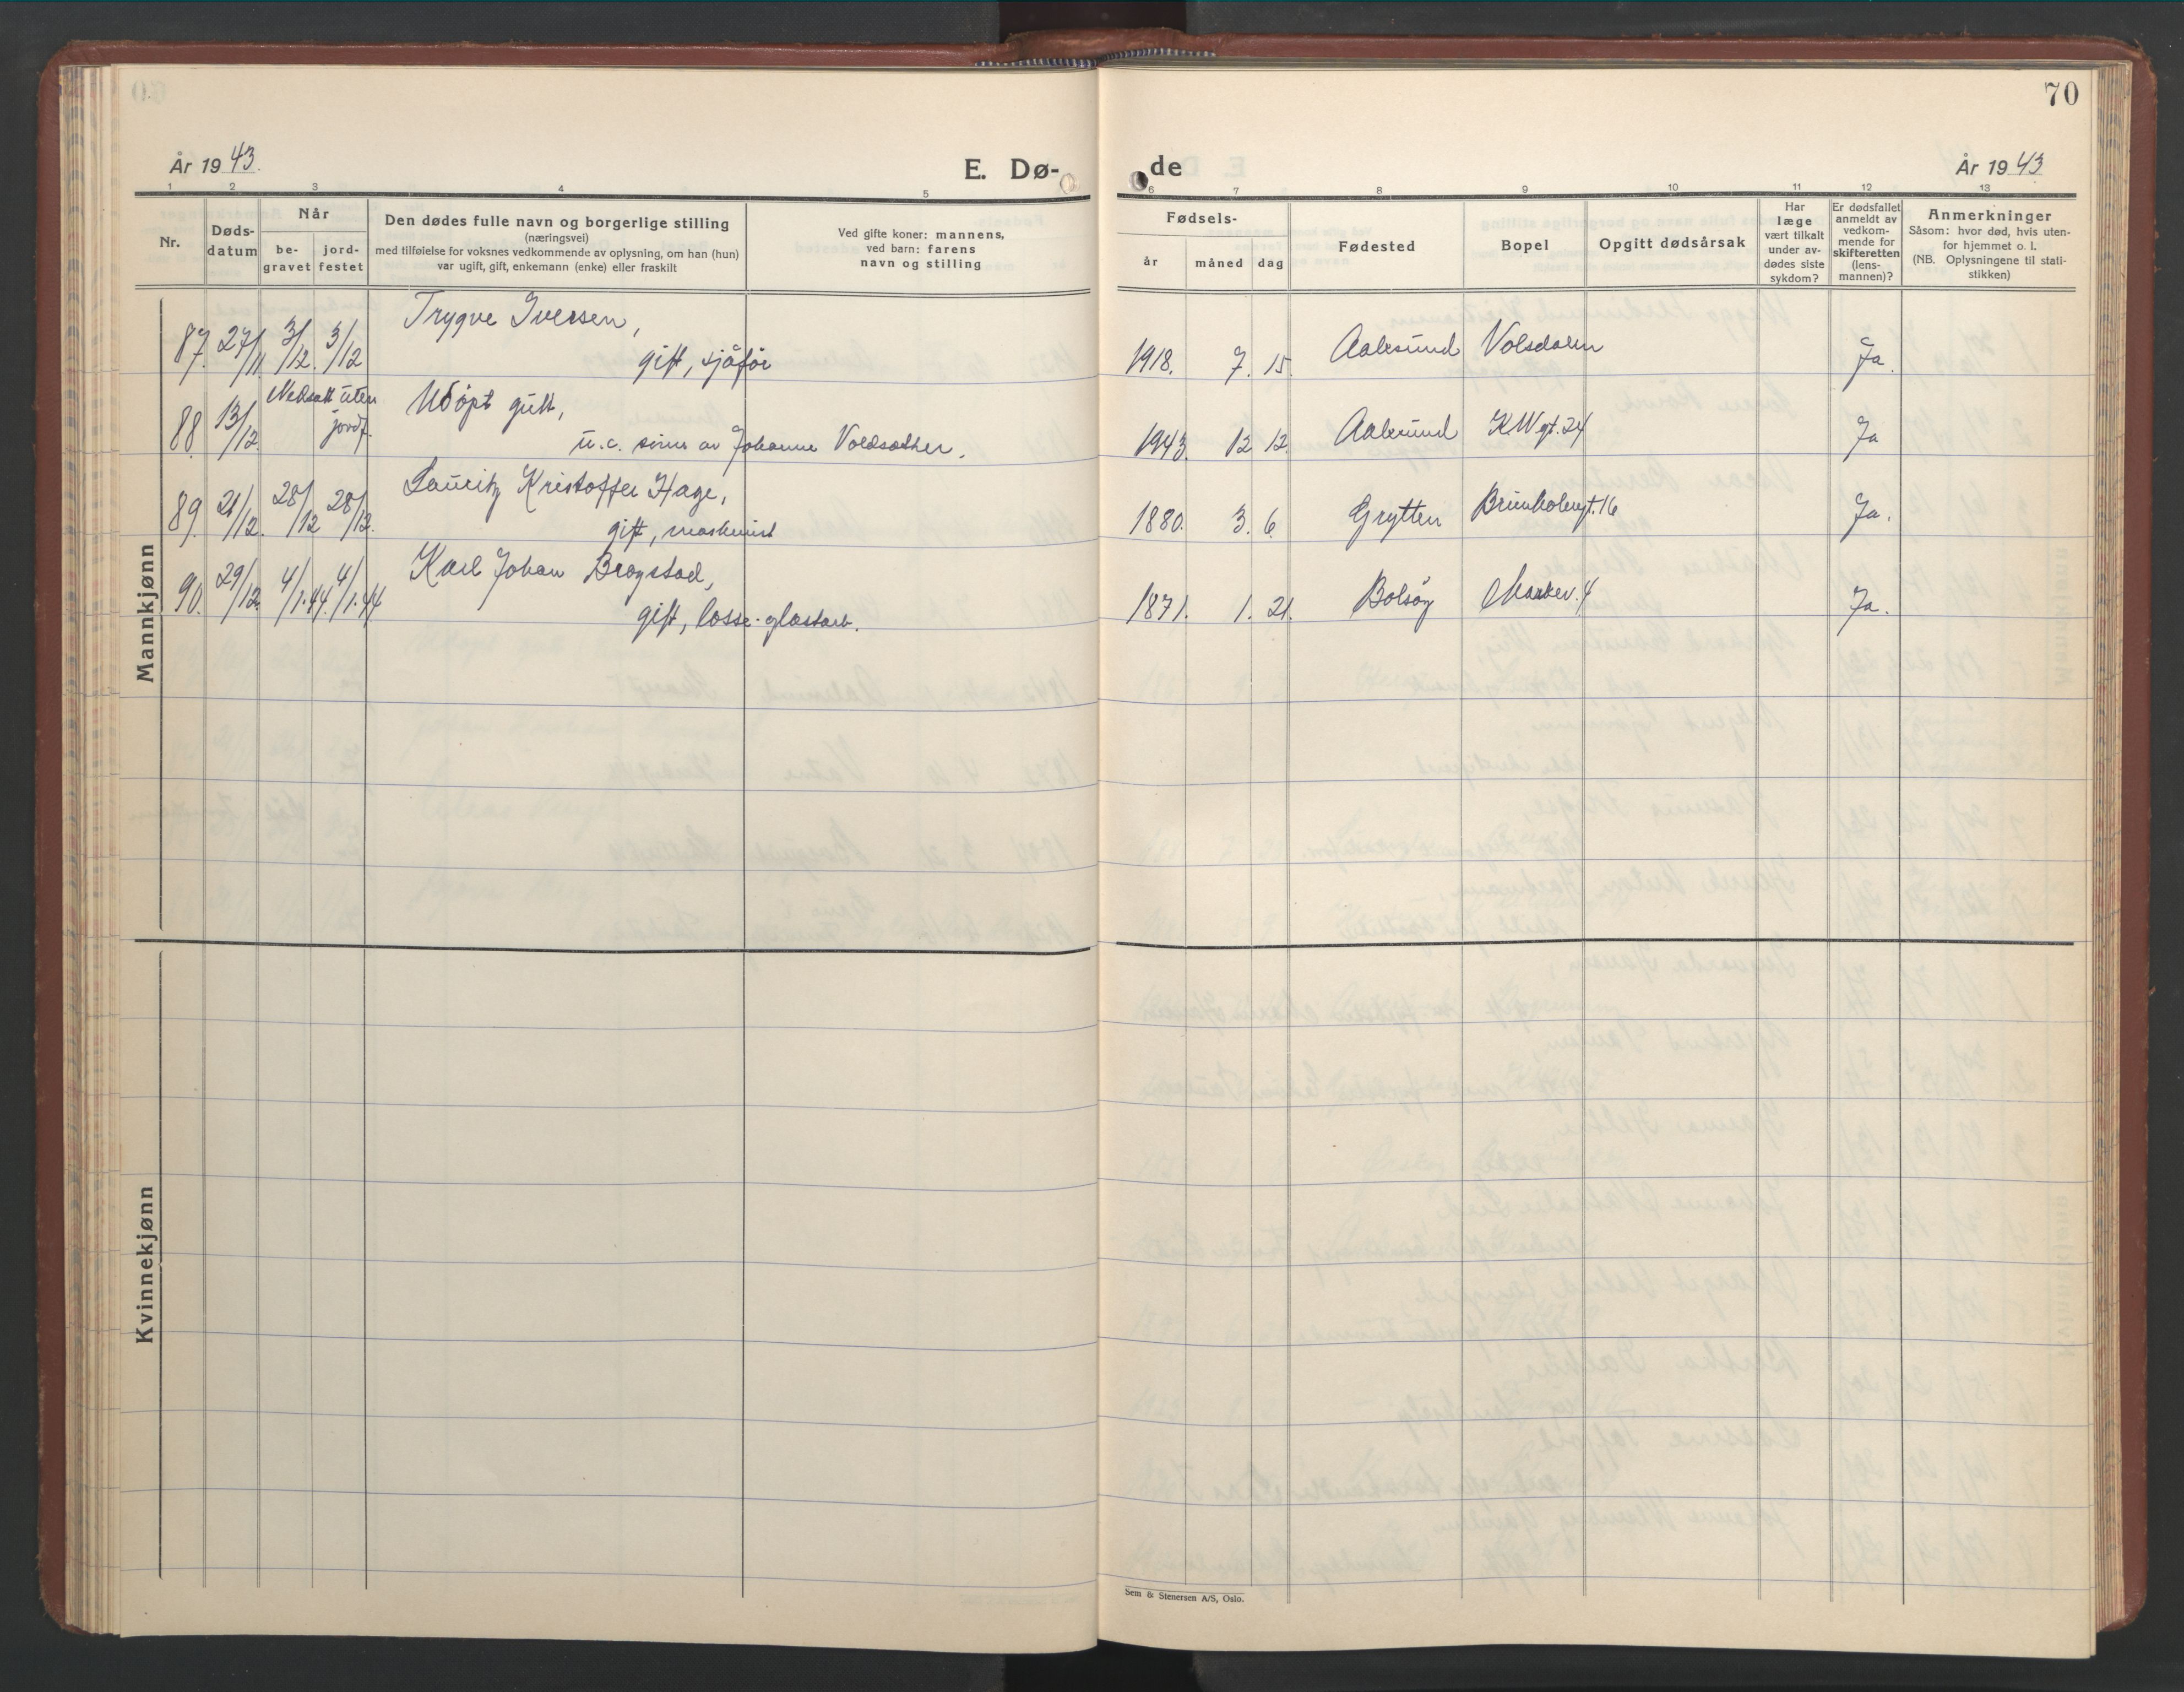 70
År 1943.
E. Dø-
de
År 1943
1 2 3 4 5 6 7 8 9 10 11 12 13
Nr.
Døds-
datum
Når
be-
gravet
jord-
festet
Den dødes fulle navn og borgerlige stilling
(næringsvei)
med tilføielse for voksnes vedkommende av oplysning, om han (hun)
var ugift, gift, enkemann (enke) eller fraskilt
Ved gifte koner: mannens,
ved barn: farens
navn og stilling
Fødsels-
år
måned
dag
Fødested
Bopel
Opgitt dødsårsak
Har
læge
vært tilkalt
under av-
dødes siste
sykdom?
Er dødsfallet
anmeldt av
vedkom-
mende for
skifteretten
(lens-
mannen)?
Anmerkninger
Såsom: hvor død, hvis uten-
for hjemmet o. l.
(NB. Oplysningene til stati-
stikken)
Mannkjønn
Trygve Iversen,
87. 27/11 3/12. 3/12 gift, sjåför 1918. 7. 15. Aalesund Volsdalen Ja.
Nedsatt uten
jordf.
Udöpt gutt,
88. 13/12. u.c. sönn av Johanne Voldsæther. 1943. 12 12. Aalesund KWgt. 24 Ja
Lauritz Kristoffer Hage,
89. 21/12. 28/12 28/12. gift, maskinist 1880. 3. 6. Grytten Brunholmgt. 16 Ja.
Karl Johan Bragstad,
90. 29/12. 4/1.44. 4/1.44 gift, losse- 1871. 1. 21. Bolsöy Markev. 4 Ja.
Kvinnekjønn
Sem & Stenersen A/S, Oslo.